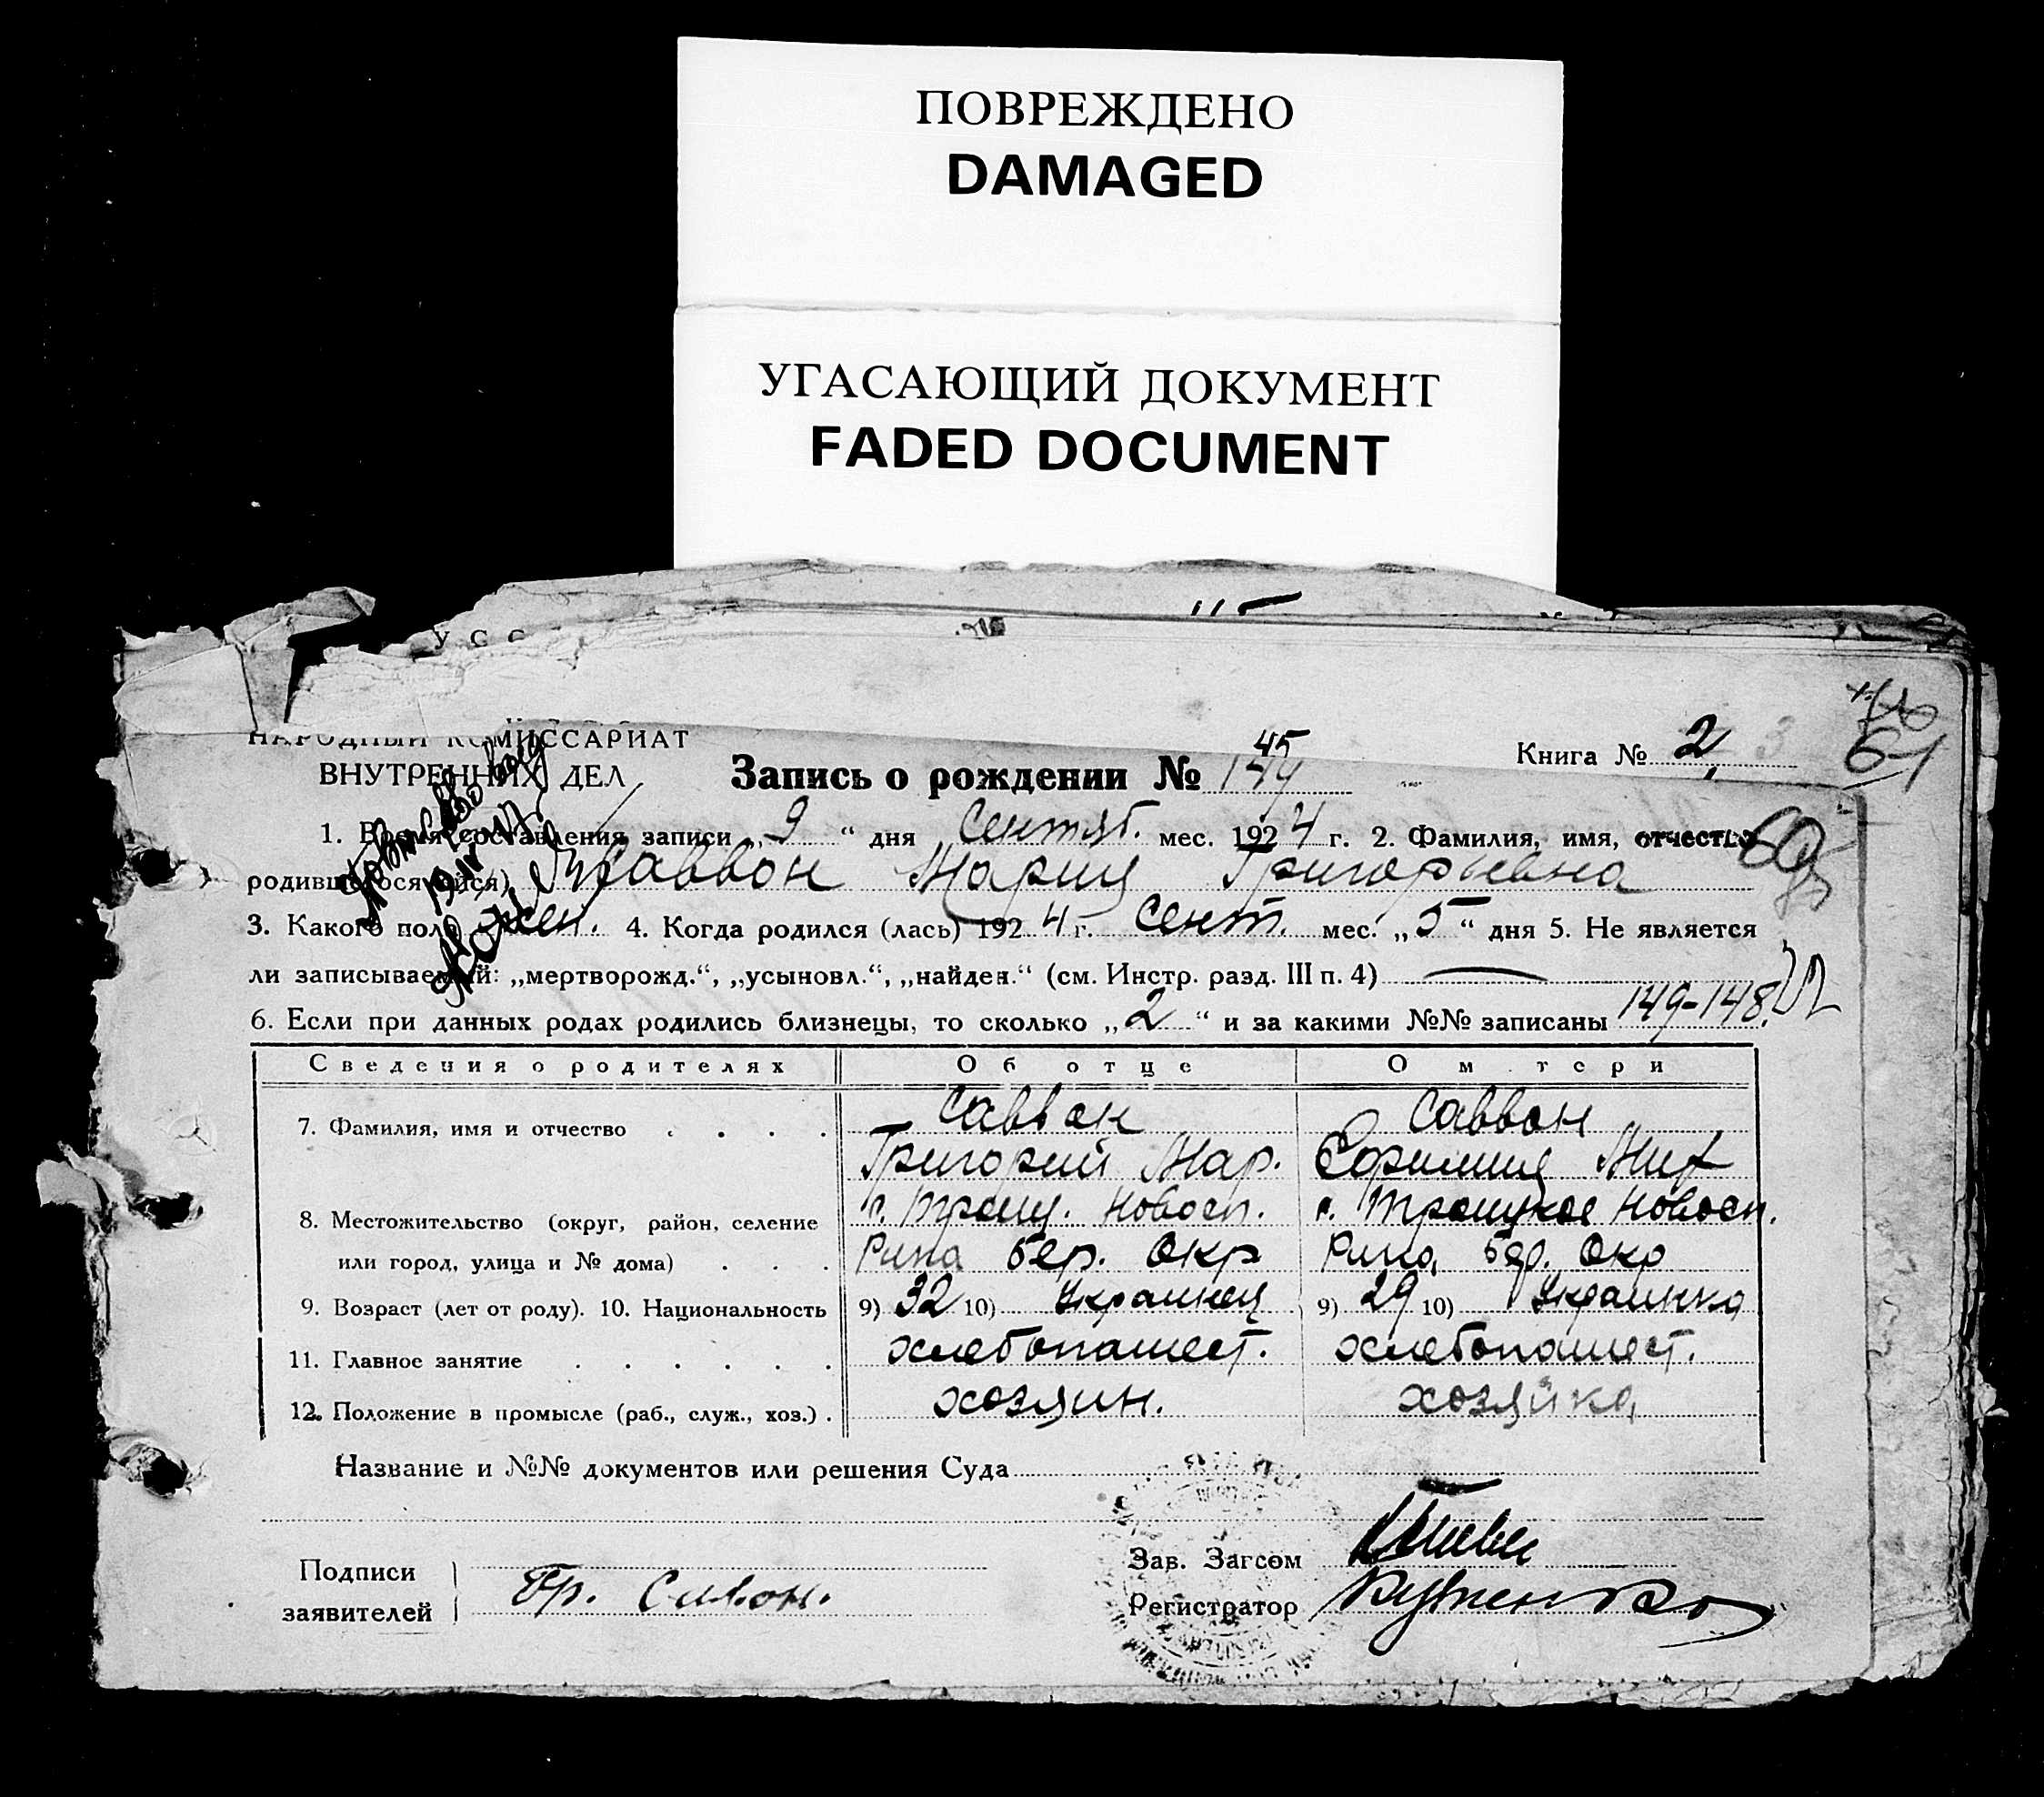 ПОВРЕЖДЕНО
DAMAGED
УГАСАЮЩИЙ ДОКУМЕНТ
FADED DOCUMENT
УСС
НАРОДНЫЙ КОМИССАРИАТ
ВНУТРЕННИХ ДЕЛ
45
Запись о рождении № 149
Книга № 2
61
1. Время составления записи „9“ дня Сентяб. мес. 1924 г. 2. Фамилия, имя, отчество
родившегося(ейся) Саввон Мария Григорьевна
3. Какого пола жен. 4. Когда родился (лась) 1924 г. сент. мес. „5“ дня 5. Не является
ли записываемый: „мертворожд.“, „усыновл.“, „найден.“ (см. Инстр. разд. III п. 4)
6. Если при данных родах родились близнецы, то сколько „2“ и за какими №№ записаны 149-148.
Сведения о родителях Об отце О м тери
7. Фамилия, имя и отчество Саввон Саввон
Григорий Мар. Мих
8. Местожительство (округ, район, селение с. Троиц. Новосп. с. Троицкое Новосп.
или город, улица и № дома) Р-на Бер. Окр Р-на Бер. Окр
9. Возраст (лет от роду). 10. Национальность 9) 32 10) Украинец 9) 29 10) Украинка
11. Главное занятие хлебопашест. хлебопашест.
12. Положение в промысле (раб., служ., хоз.) хозяин. хозяйка
Название и №№ документов или решения Суда
Подписи
заявителей Гр. Савон.
Зав. Загсом
Регистратор